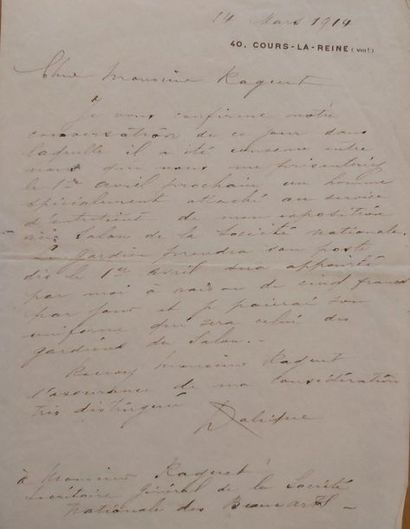 14 Mars 1914
40. COURS-LA-REINE (VIIIe)
Cher Monsieur Raquet
Je vous confirme notre
conversation de ce jour dans
laquelle il a été convenu entre
nous que vous me présenteriez
le 1er avril prochain un homme
spécialement attaché au service
d'entretien de mon exposition
au Salon de la Société nationale.
Le gardien prendra son poste
dès le 1er avril sera appointé
par moi à raison de cinq francs
par jour et je paierai son
uniforme qui sera celui des
gardiens du Salon.-
Recevez Monsieur Raquet
l'assurance de ma considération
très distinguée
à Monsieur Raquet
secrétaire Général de la Société
Nationale des Beaux arts -